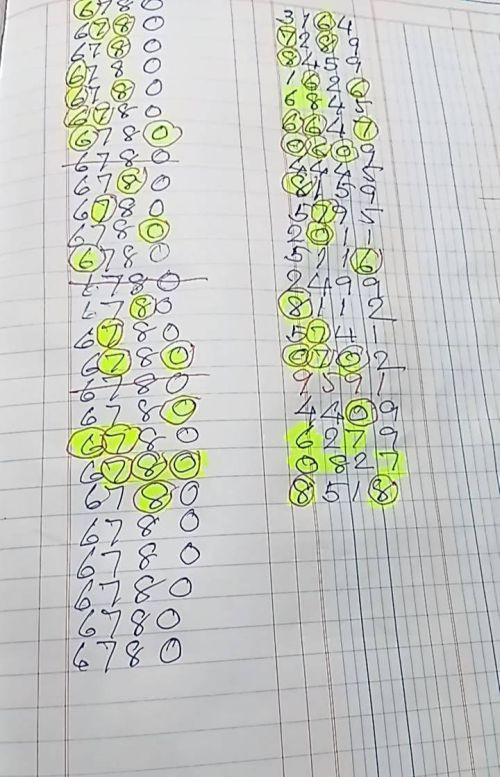 6780 3164
6780 7289
6780 8459
6780 1626
6780 6845
6780 6647
6780 0609
6780 4445
6780 8159
6780 5795
6780 2011
6780 5116
6780 2499
6780 8112
6780 5741
6780 0702
6780 9591
6780 4409
6780 6279
6780 0827
6780 8518
6780
6780
6780
6780
6780